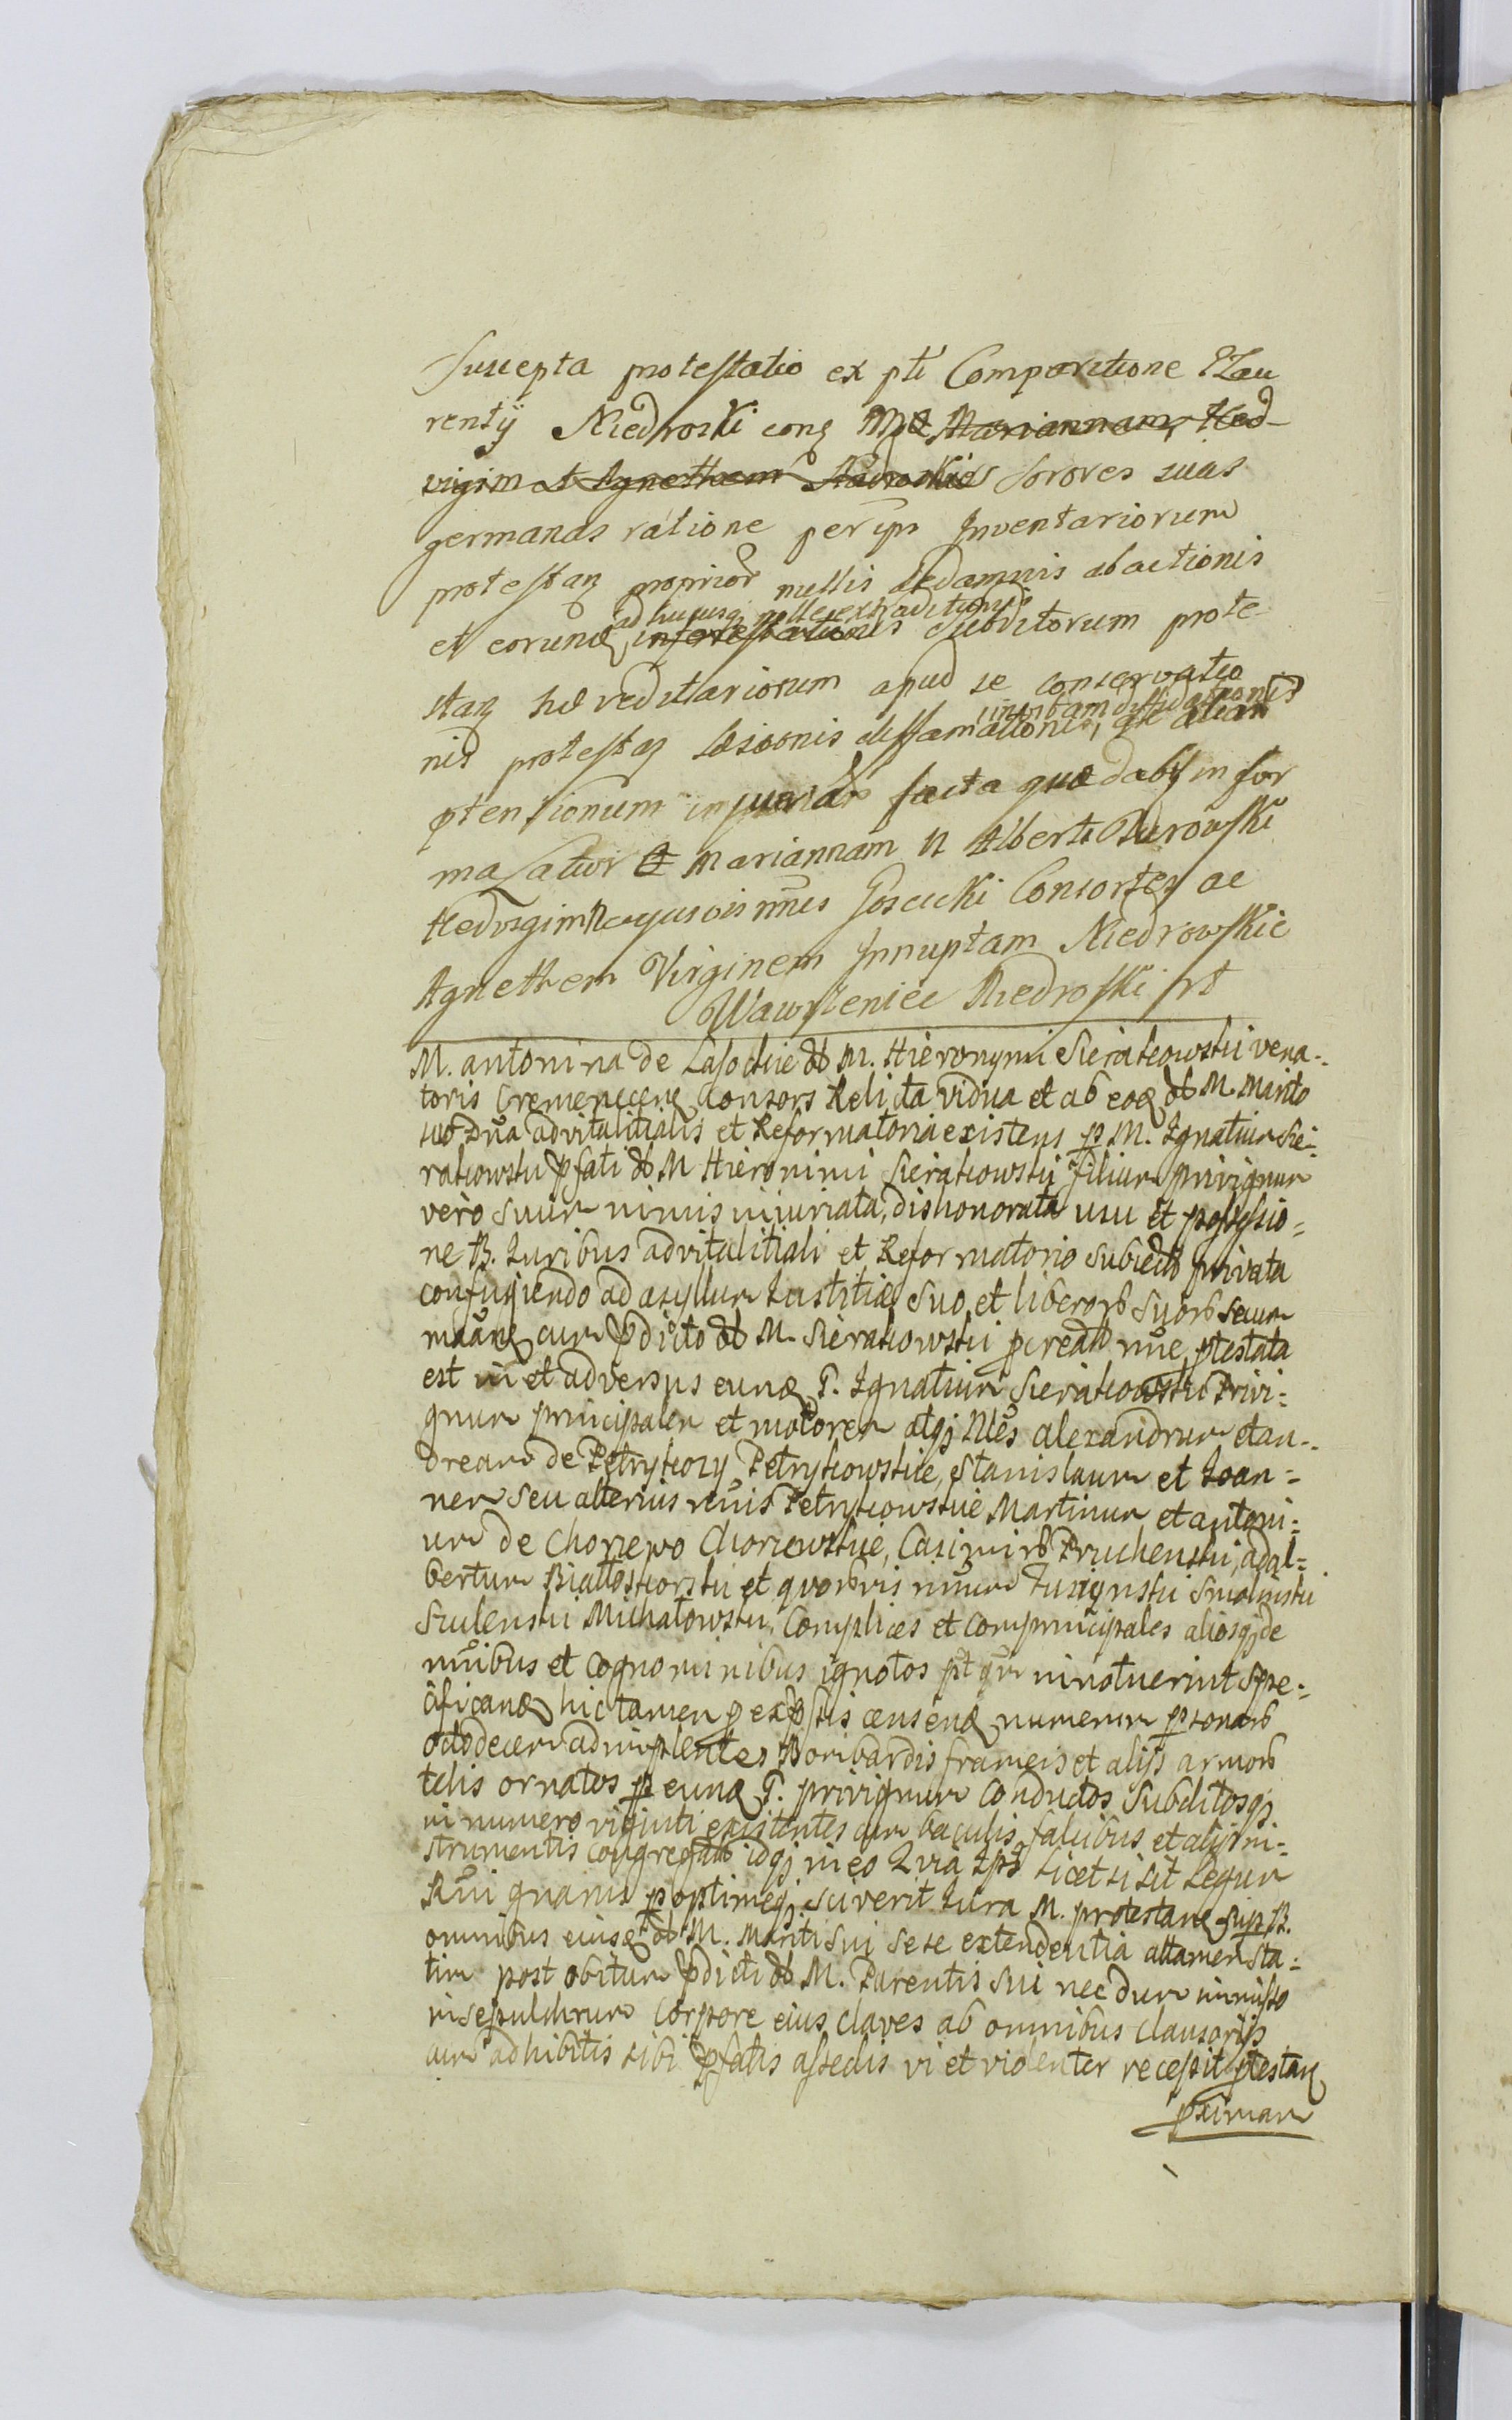 Suscepta protestatio ex pti Comparitione Lau
rentÿ Niedroski conz Mgd Mariannam, Hed-
vigim et Agnethem Niedroskie Sorores suas
germanas ratione per ips Inventariorum
protestanz proprior mellis de damnis abactionis
ad hucusqz nolle extraditionis
et eorundz infestationis Subditorum prote
stanz hæreditariorum apud se conservatio
invitam diffidationis
nis protestanz læsionis diffamationis, ac aliar
ptensionum injuriar facta quæ dabit in for
ma latior et Mariannam N Alberti Durowski
Hedvigim N cujusvis nnis Goscicki Consortes ac
Agnethem Virginem Innuptam Niedrowskie
Wawrzeniec Niedroski srt
M. Antonina de Lasockie olb M. Hieronymi Sierakowski vena-
toris Cremenecenz Consors Relicta vidua et ab eodz olb M. Marito
suo Dna advitalitialis et Reformatoria existens p M. Ignatium Sie-
rakowski pfati olb M Hieronimi Sierakowski filium privignum
vero suum nimis injuriata, dishonorata usu et possessio-
ne B. Iuribus advitalitiali et Reformatorio subiectis privata
confugiendo ad azyllum Iustitiæ suo et liberorb suorb secum
mãanz cum pdicto olb M. Sierakowski pcreatb nne, ptestata
est in et adversus eundz G. Ignatium Sierakowski Privi-
gnum principalem et motorem atqz Nles Alexandrum et An-
dream de Petrykozy Petrykowskie, Stanislaum et Ioan-
nem seu alterius nnis Petrykowskie Martinum et Antoni-
um de Chorzewo Chorzewskie, Casimirb Pruchenski, Adal-
bertum Białłoskorski et quorbvis nnum Tuszynski Smolinski
Sculenski Michałowski, Complices et Comprincipales aliosqz de
nnibus et Cognominibus ignotos pt qm innotuerint spe-
cificandz hic tamen p expssis censendz numerum psonarb
octodecem adimplentes Bombardis frameis et alÿs armorb
telis ornatos p eundz G. privignum Conductos Subditosqz
in numero viginti existentes cum baculis falcibus et alÿs in-
strumentis congregatb idqz in eo Quia Ips licet si sit Legum
Rni gnarus p optimeqz sciverit Iura M. protestanz sup B.
omnibus eiusdz olb M. Mariti sui sese extendentia attamen sta-
tim post obitum pdicti olb M. Parentis sui nec dum immisso
in sepulchrum Corpore eius claves ab omnibus clausorÿs
cum adhibitis sibi pfatis assedis vi et violenter recepit ptestanz
pximam